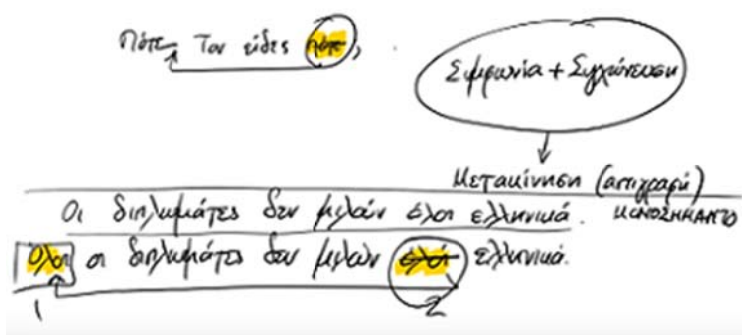 Πότε τον είδες πότε;
Συμφωνία + Συγχώνευση
Μετακίνηση (αντιγραφή)
Οι διπλωμάτες δεν μιλάν όλοι ελληνικά.
Όλοι οι διπλωμάτες δεν μιλάν όλοι ελληνικά.
1 2